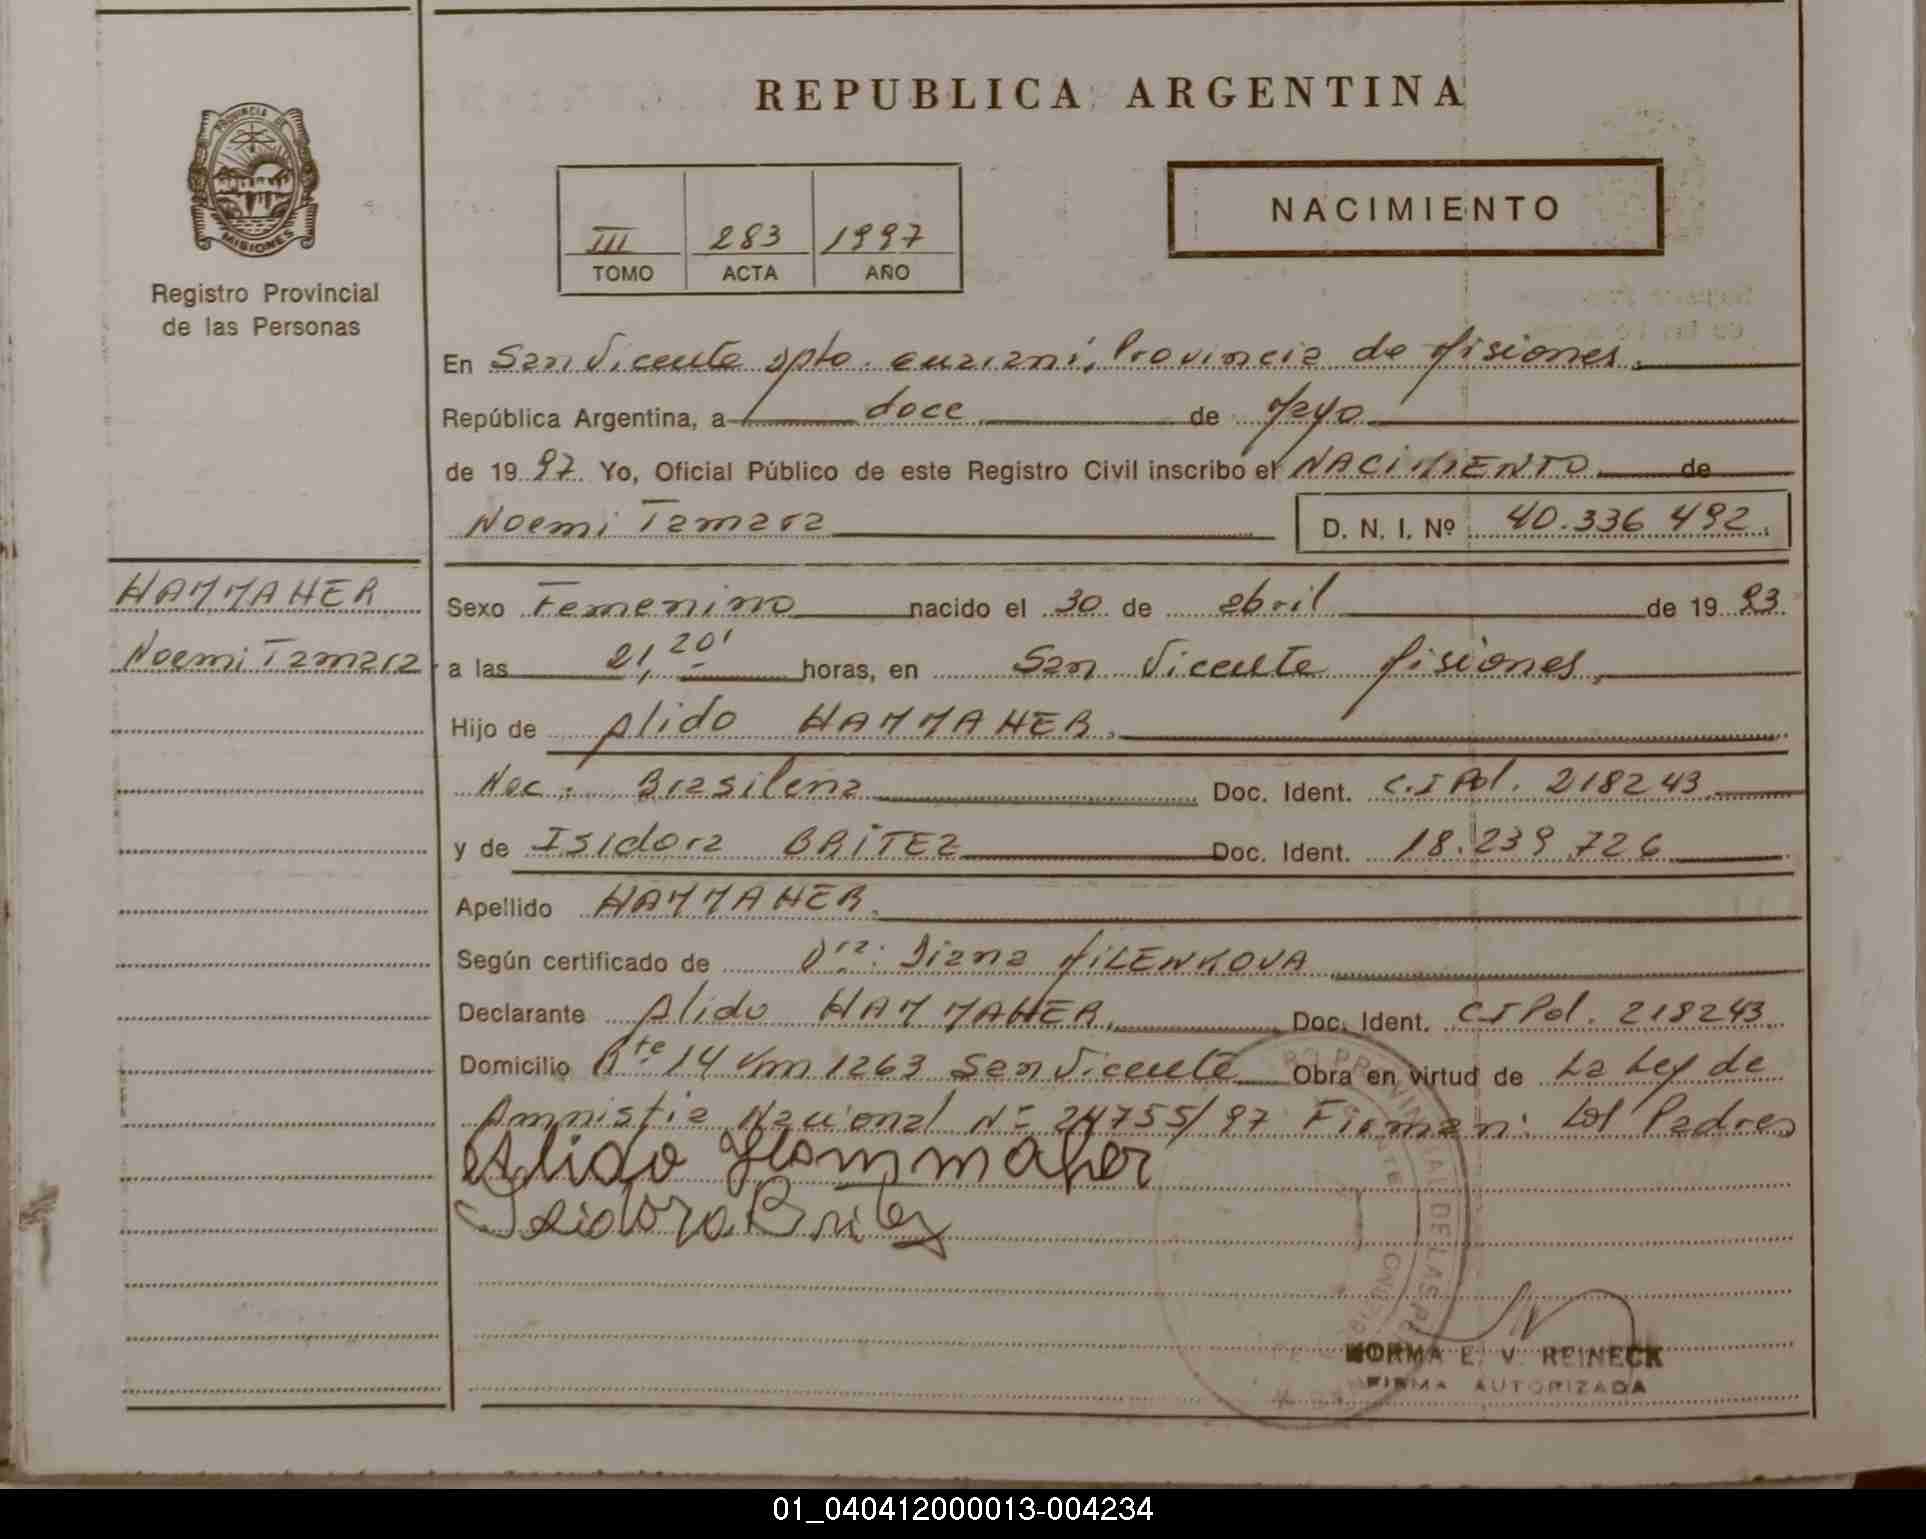 REPUBLICA ARGENTINA
PROVINCIA DE
MISIONES
Registro Provincial
de las Personas
NACIMIENTO
III 283 1997
TOMO ACTA AÑO
En San Vicente Dpto. Guaraní, Provincia de Misiones.
República Argentina, a doce de Mayo
de 1997 Yo, Oficial Público de este Registro Civil inscribo el NACIMIENTO de
Noemi Tamara D. N. I. Nº 40.336.492.
HAMMAHER
Noemi Tamara
Sexo Femenino nacido el 30 de abril de 1993.
a las 21,20' horas, en San Vicente Misiones,
Hijo de Alido HAMMAHER.
Nac. Brasilena Doc. Ident. C.I Pol. 218243
y de Isidora BRITEZ Doc. Ident. 18.239.726
Apellido HAMMAHER.
Según certificado de Dra. Diana MILENKOVA
Declarante Alido HAMMAHER. Doc. Ident. CI Pol. 218243
Domicilio Rta 14 Km 1263 San Vicente Obra en virtud de La Ley de
Amnistia Nacional Nº 24755/97 Firman: Los Padres
Alido Hammaher
Isidora Britez
NORMA E. V. REINECK
FIRMA AUTORIZADA
01_040412000013-004234